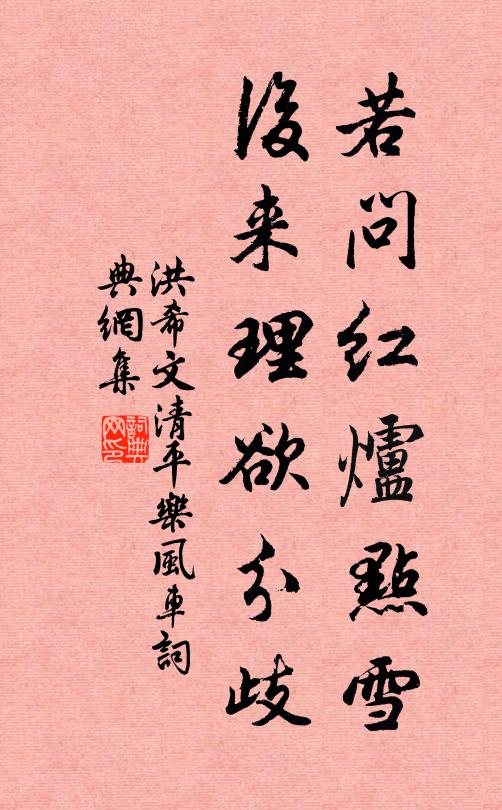 若問红爐點雪
後来理欲分歧
洪希文清平樂風車詞
典網集
詞典網印